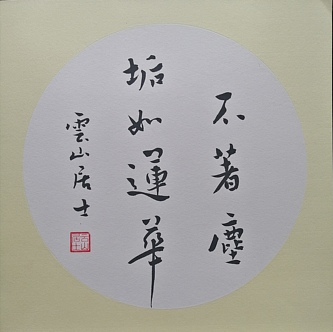 不著塵
垢如蓮華
雲山居士